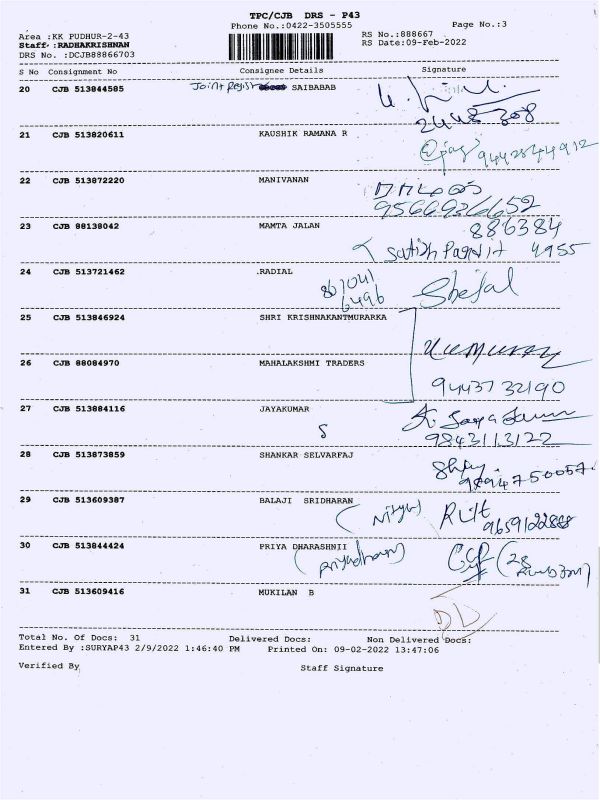 TPC/CJB DRS - P43
Phone No.:0422-3505555
Page No.:3
Area :KK PUDHUR-2-43
RS No.:888667
Staff :RADHAKRISHNAN
RS Date:09-Feb-2022
DRS No. :DCJB88866703
S No Consignment No Consignee Details Signature
20 CJB 513844585 Joint Regist SAIBABAB
21 CJB 513820611 KAUSHIK RAMANA R
22 CJB 513872220 MANIVANAN
23 CJB 88138042 MAMTA JALAN 886384
Satish Pandit 4955
24 CJB 513721462 .RADIAL
Shejal
25 CJB 513846924 SHRI KRISHNAKANTMURARKA
26 CJB 88084970 MAHALAKSHMI TRADERS
9443732190
27 CJB 513884116 JAYAKUMAR
9843113122
28 CJB 513873859 SHANKAR SELVARFAJ
9894750057
29 CJB 513609387 BALAJI SRIDHARAN
30 CJB 513844424 PRIYA DHARASHNII
(Priyadharshni)
31 CJB 513609416 MUKILAN B
DL
Total No. Of Docs: 31 Delivered Docs: Non Delivered Docs:
Entered By :SURYAP43 2/9/2022 1:46:40 PM Printed On: 09-02-2022 13:47:06
Verified By Staff Signature